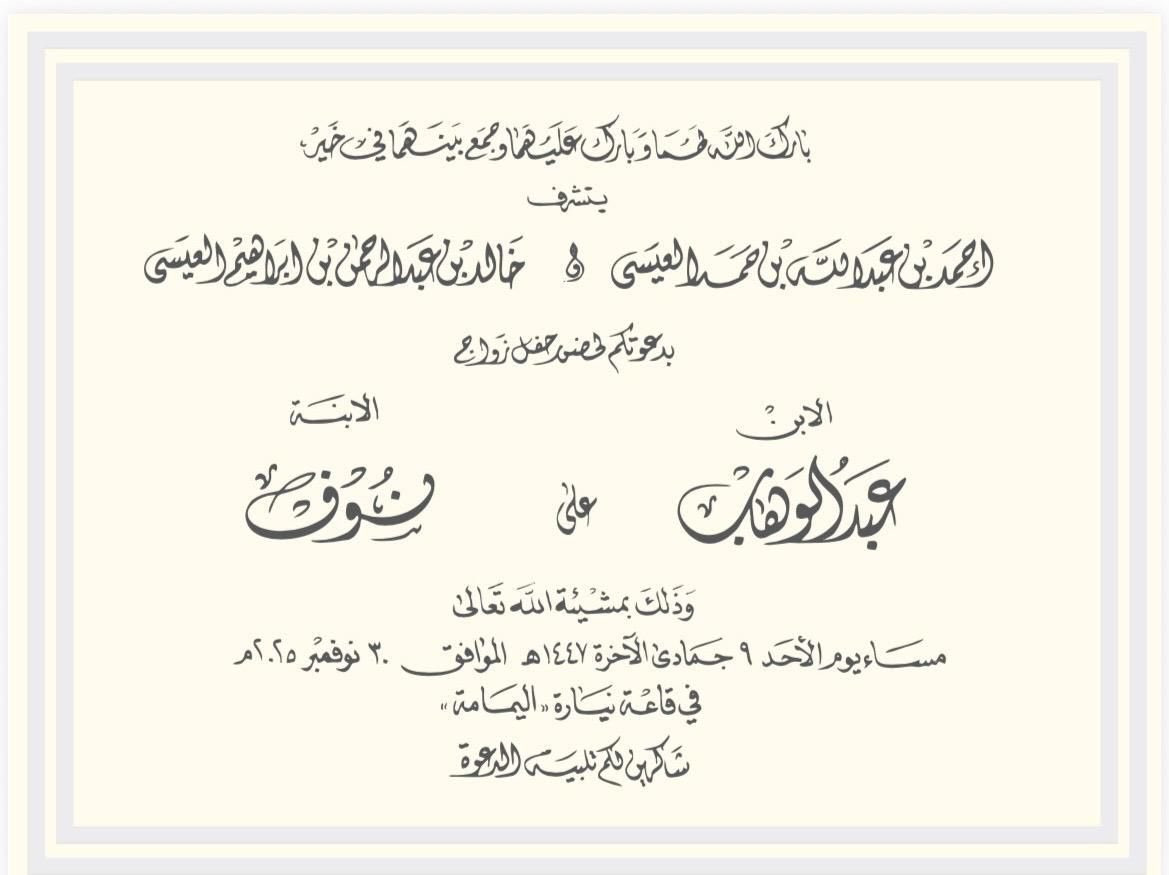 بارك الله لهما وبارك عليهما وجمع بينهما في خير
يتشرف
أحمد بن عبدالله بن حمد العيسى و خالد بن عبدالرحمن بن ابراهيم العيسى
بدعوتكم لحضور حفل زواج
الابن الابنة
عبدالوهاب على نوف
وذلك بمشيئة الله تعالى
مساء يوم الأحد ٩ جمادى الآخرة ١٤٤٧هـ الموافق ٣٠ نوفمبر ٢٠٢٥م
في قاعة نيارة «اليمامة»
شاكرين لكم تلبية الدعوة